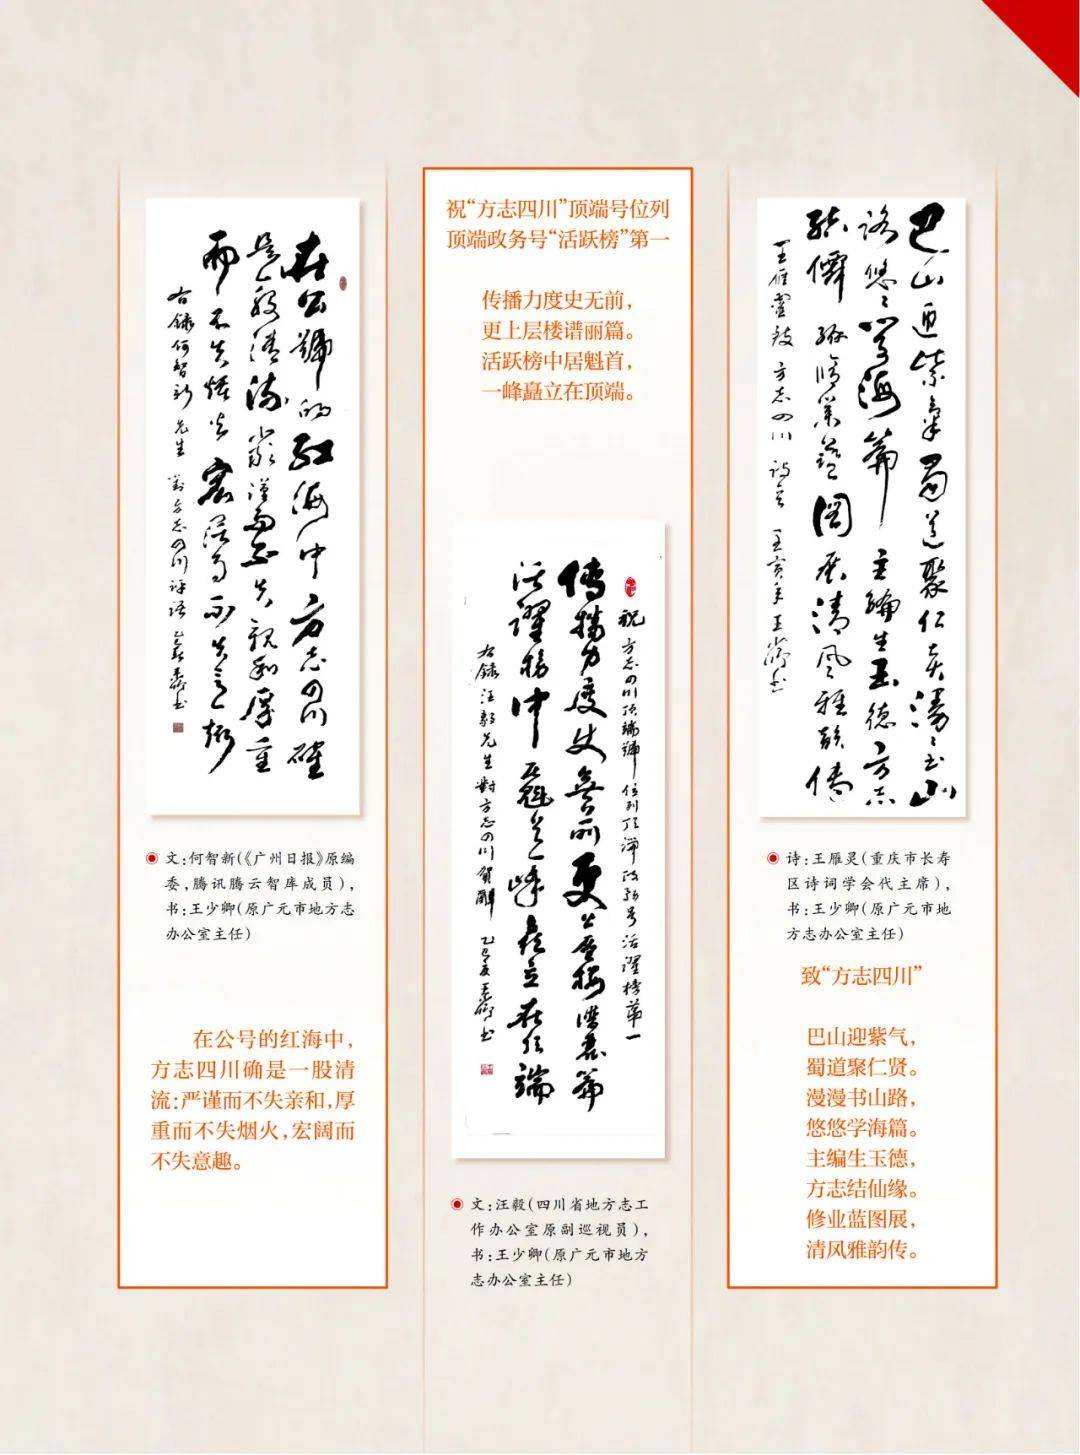 在公號的紅海中方志四川確
是一股清流嚴謹而不失親和厚重
而不失煙火宏闊而不失意趣
右録何智新先生對方志四川评语
文:何智新(《广州日报》原编
委,腾讯腾云智库成员),
书:王少卿(原广元市地方志
办公室主任)
在公号的红海中,
方志四川确是一股清
流:严谨而不失亲和,厚
重而不失烟火,宏阔而
不失意趣。
祝“方志四川”顶端号位列
顶端政务号“活跃榜”第一
传播力度史无前,
更上层楼谱丽篇。
活跃榜中居魁首,
一峰矗立在顶端。
祝方志四川顶端號位列顶端政務号活躍榜第一
傳播力度史無前更上層樓譜麗篇
活躍榜中居魁首一峰矗立在顶端
右録汪毅先生對方志四川賀辭 乙巳夏王少卿书
文:汪毅(四川省地方志工
作办公室原副巡视员),
书:王少卿(原广元市地方
志办公室主任)
巴山迎紫氣蜀道聚仁賢漫漫书山
路悠悠学海篇主编生玉德方志
结僊緣修業藍圖展清風雅韻傳
王雁靈致方志四川
诗:王雁灵(重庆市长寿
区诗词学会代主席),
书:王少卿(原广元市地
方志办公室主任)
致“方志四川”
巴山迎紫气,
蜀道聚仁贤。
漫漫书山路,
悠悠学海篇。
主编生玉德,
方志结仙缘。
修业蓝图展,
清风雅韵传。